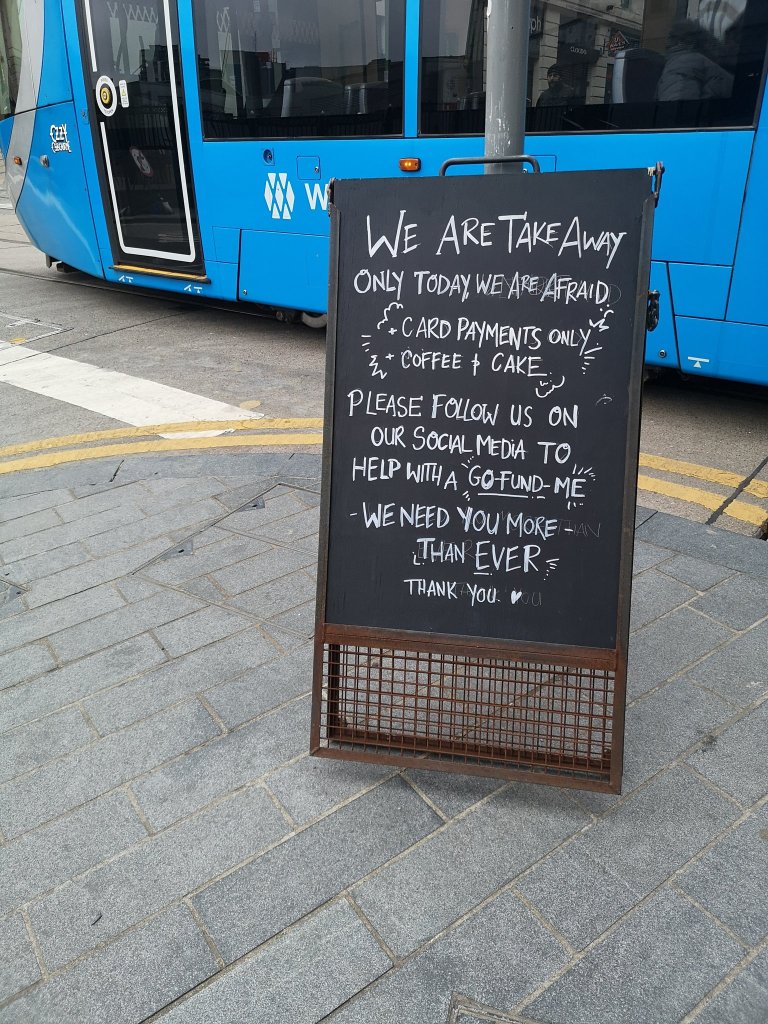 OZZY
W
WE ARE TAKE AWAY
ONLY TODAY, WE ARE AFRAID
+ CARD PAYMENTS ONLY
+ COFFEE + CAKE
PLEASE FOLLOW US ON
OUR SOCIAL MEDIA TO
HELP WITH A GO-FUND-ME
- WE NEED YOU MORE -
THAN EVER
THANK YOU ♥